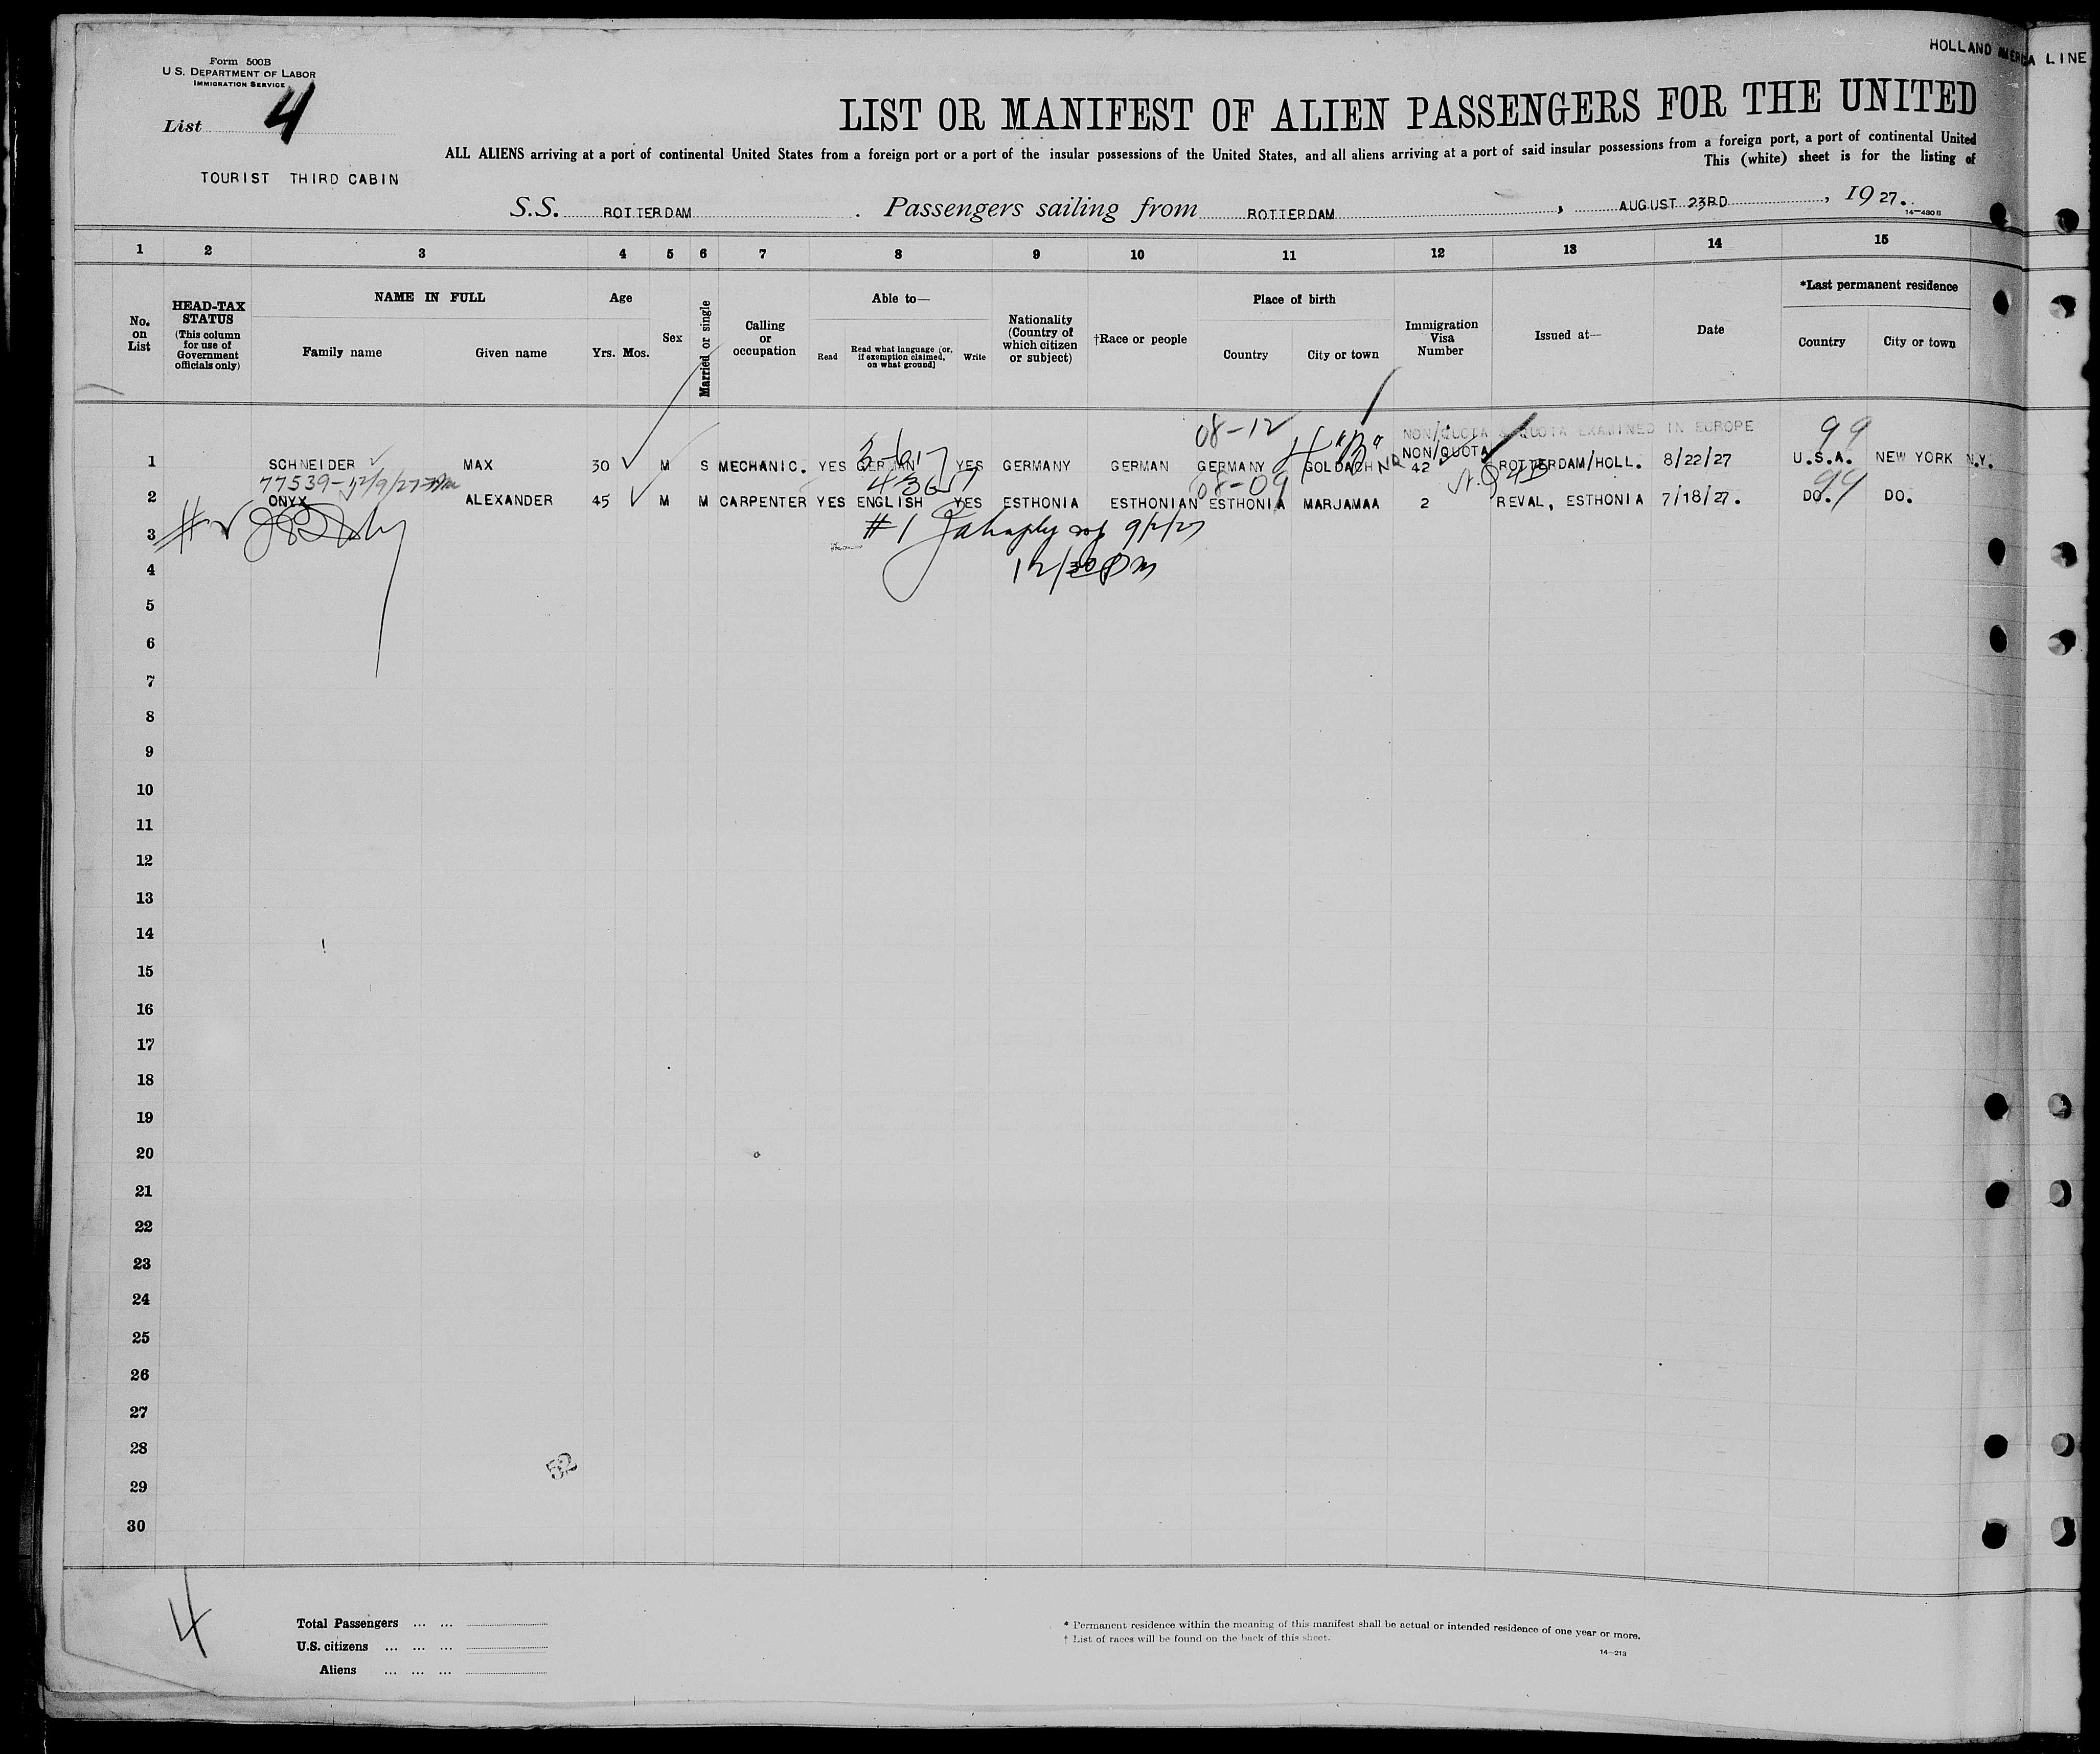 HOLLAND AMERICA LINE
Form 500B
U.S. DEPARTMENT OF LABOR
IMMIGRATION SERVICE
List 4
LIST OR MANIFEST OF ALIEN PASSENGERS FOR THE UNITED
ALL ALIENS arriving at a port of continental United States from a foreign port or a port of the insular possessions of the United States, and all aliens arriving at a port of said insular possessions from a foreign port, a port of continental United
This (white) sheet is for the listing of
TOURIST THIRD CABIN
S.S. ROTTERDAM. Passengers sailing from ROTTERDAM, AUGUST 23RD, 1927.
14—430 B
1 2 3 4 5 6 7 8 9 10 11 12 13 14 15
No. on List
HEAD-TAX STATUS (This column for use of Government officials only)
NAME IN FULL
Family name Given name
Age
Yrs. Mos.
Sex
Married or single
Calling or occupation
Able to—
Read
Read what language [or, if exemption claimed, on what ground]
Write
Nationality (Country of which citizen or subject)
†Race or people
Place of birth
Country City or town
Immigration Visa Number
Issued at—
Date
*Last permanent residence
Country City or town
08-12
NON/QUOTA & QUOTA EXAMINED IN EUROPE
99
NON/QUOTA
1 SCHNEIDER MAX 30 M S MECHANIC. YES GERMAN YES GERMANY GERMAN GERMANY GOLDACH 42 ROTTERDAM/HOLL. 8/22/27 U.S.A. NEW YORK N.Y.
08-09 99
2 ONYX ALEXANDER 45 M M CARPENTER YES ENGLISH YES ESTHONIA ESTHONIAN ESTHONIA MARJAMAA 2 REVAL, ESTHONIA 7/18/27. DO. DO.
3 #1 9/2/27
4 12/30PM
5
6
7
8
9
10
11
12
13
14
15
16
17
18
19
20
21
22
23
24
25
26
27
28
52
29
30
4
Total Passengers ... ...
U.S. citizens ... ... ...
Aliens ... ... ...
* Permanent residence within the meaning of this manifest shall be actual or intended residence of one year or more.
† List of races will be found on the back of this sheet.
14—213